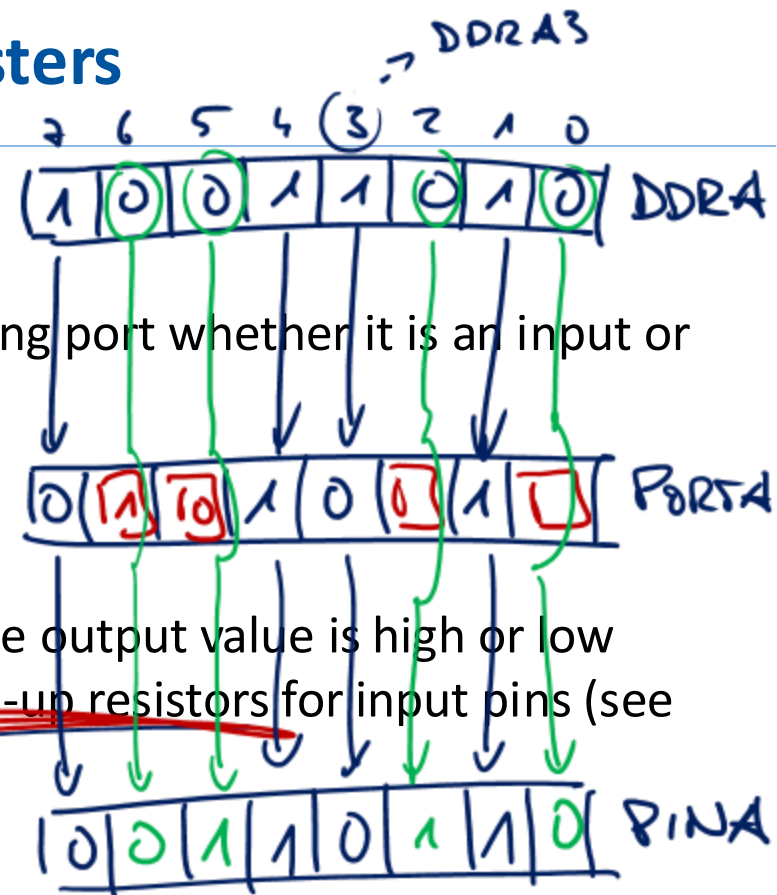 sters
DDRA3
7 6 5 4 3 2 1 0
1 0 0 1 1 0 1 0 DDRA
ng port whether it is an input or
0 1 0 1 0 0 1 PORTA
e output value is high or low
-up resistors for input pins (see
0 0 1 1 0 1 1 0 PINA